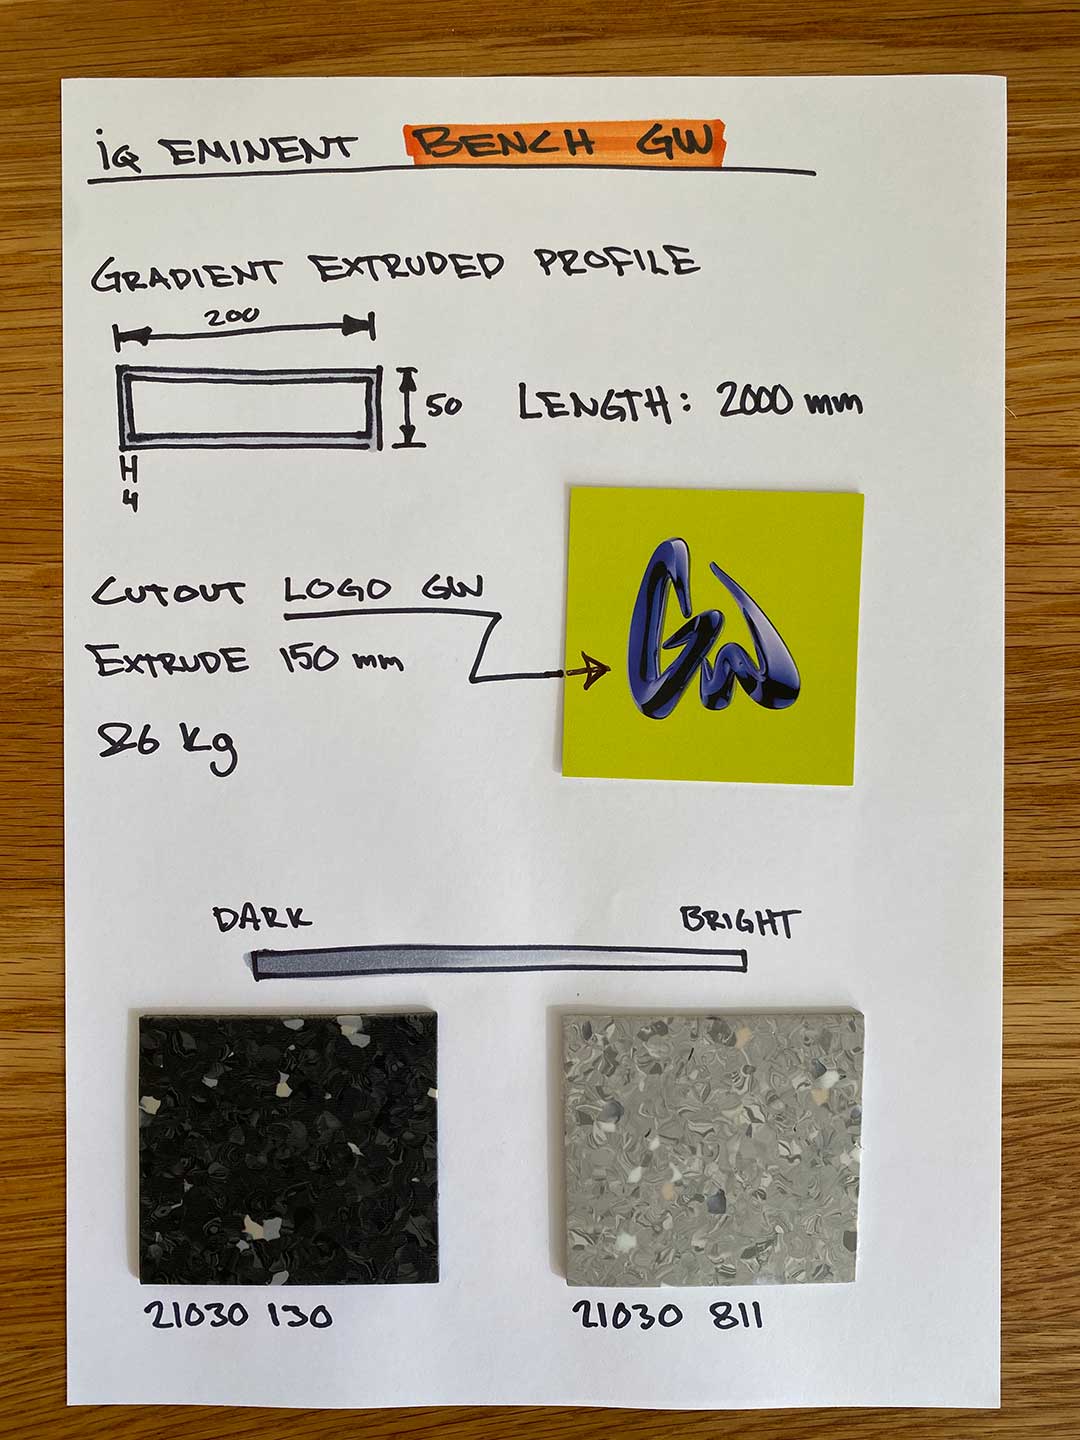 iQ EMINENT BENCH GW
GRADIENT EXTRUDED PROFILE
200
50
LENGTH: 2000 mm
4
CUTOUT LOGO GW
EXTRUDE 150 mm
GW
26 Kg
DARK
BRIGHT
21030 130
21030 811